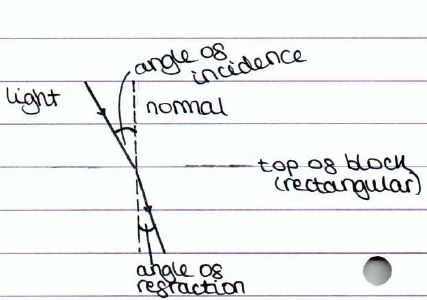 angle of
incidence
light
normal
top of block
(rectangular)
angle of
refraction